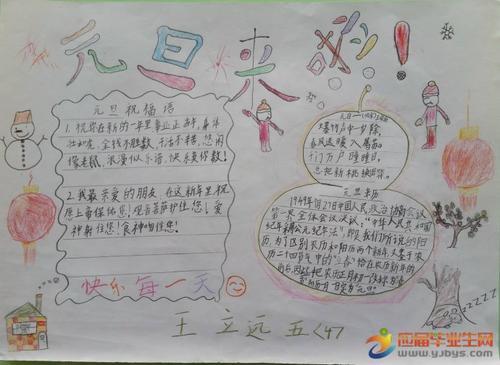 元旦来啦!
元旦祝福语
1.祝你在新的一年里事业正当午,身体
壮如虎,金钱不胜数,干活不辛苦,悠闲
像老鼠,浪漫似乐谱,快乐莫你数!
2.我最亲爱的朋友,在这新年里祝
愿上帝保佑您!观音菩萨护住您!爱
神射住您!食神吻住您!
快乐每一天
元旦
爆竹声中一岁除,
春风送暖入屠苏
千门万户曈曈日,
总把新桃换旧符。
元旦来历
1949年9月27日中国人民政治协商会议
第一次全体会议决议:"中华人民共和国
纪年采用公元纪年法",即是我们所说的阳
历,为了区别农历和阳历两个新年,又鉴于农
历二十四节气中的"立春"恰在农历新年的
前后,因此把农历正月初一改称为
王立远 五<4>
zzzzz
应届毕业生网
www.yjbys.com